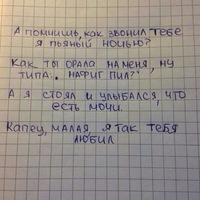 А помнишь, как звонил тебе
я пьяный ночью?
Как ты орала на меня, ну
типа: нафиг пил?
А я стоял и улыбался, что
есть мочи.
Капец, малая, я так тебя
любил